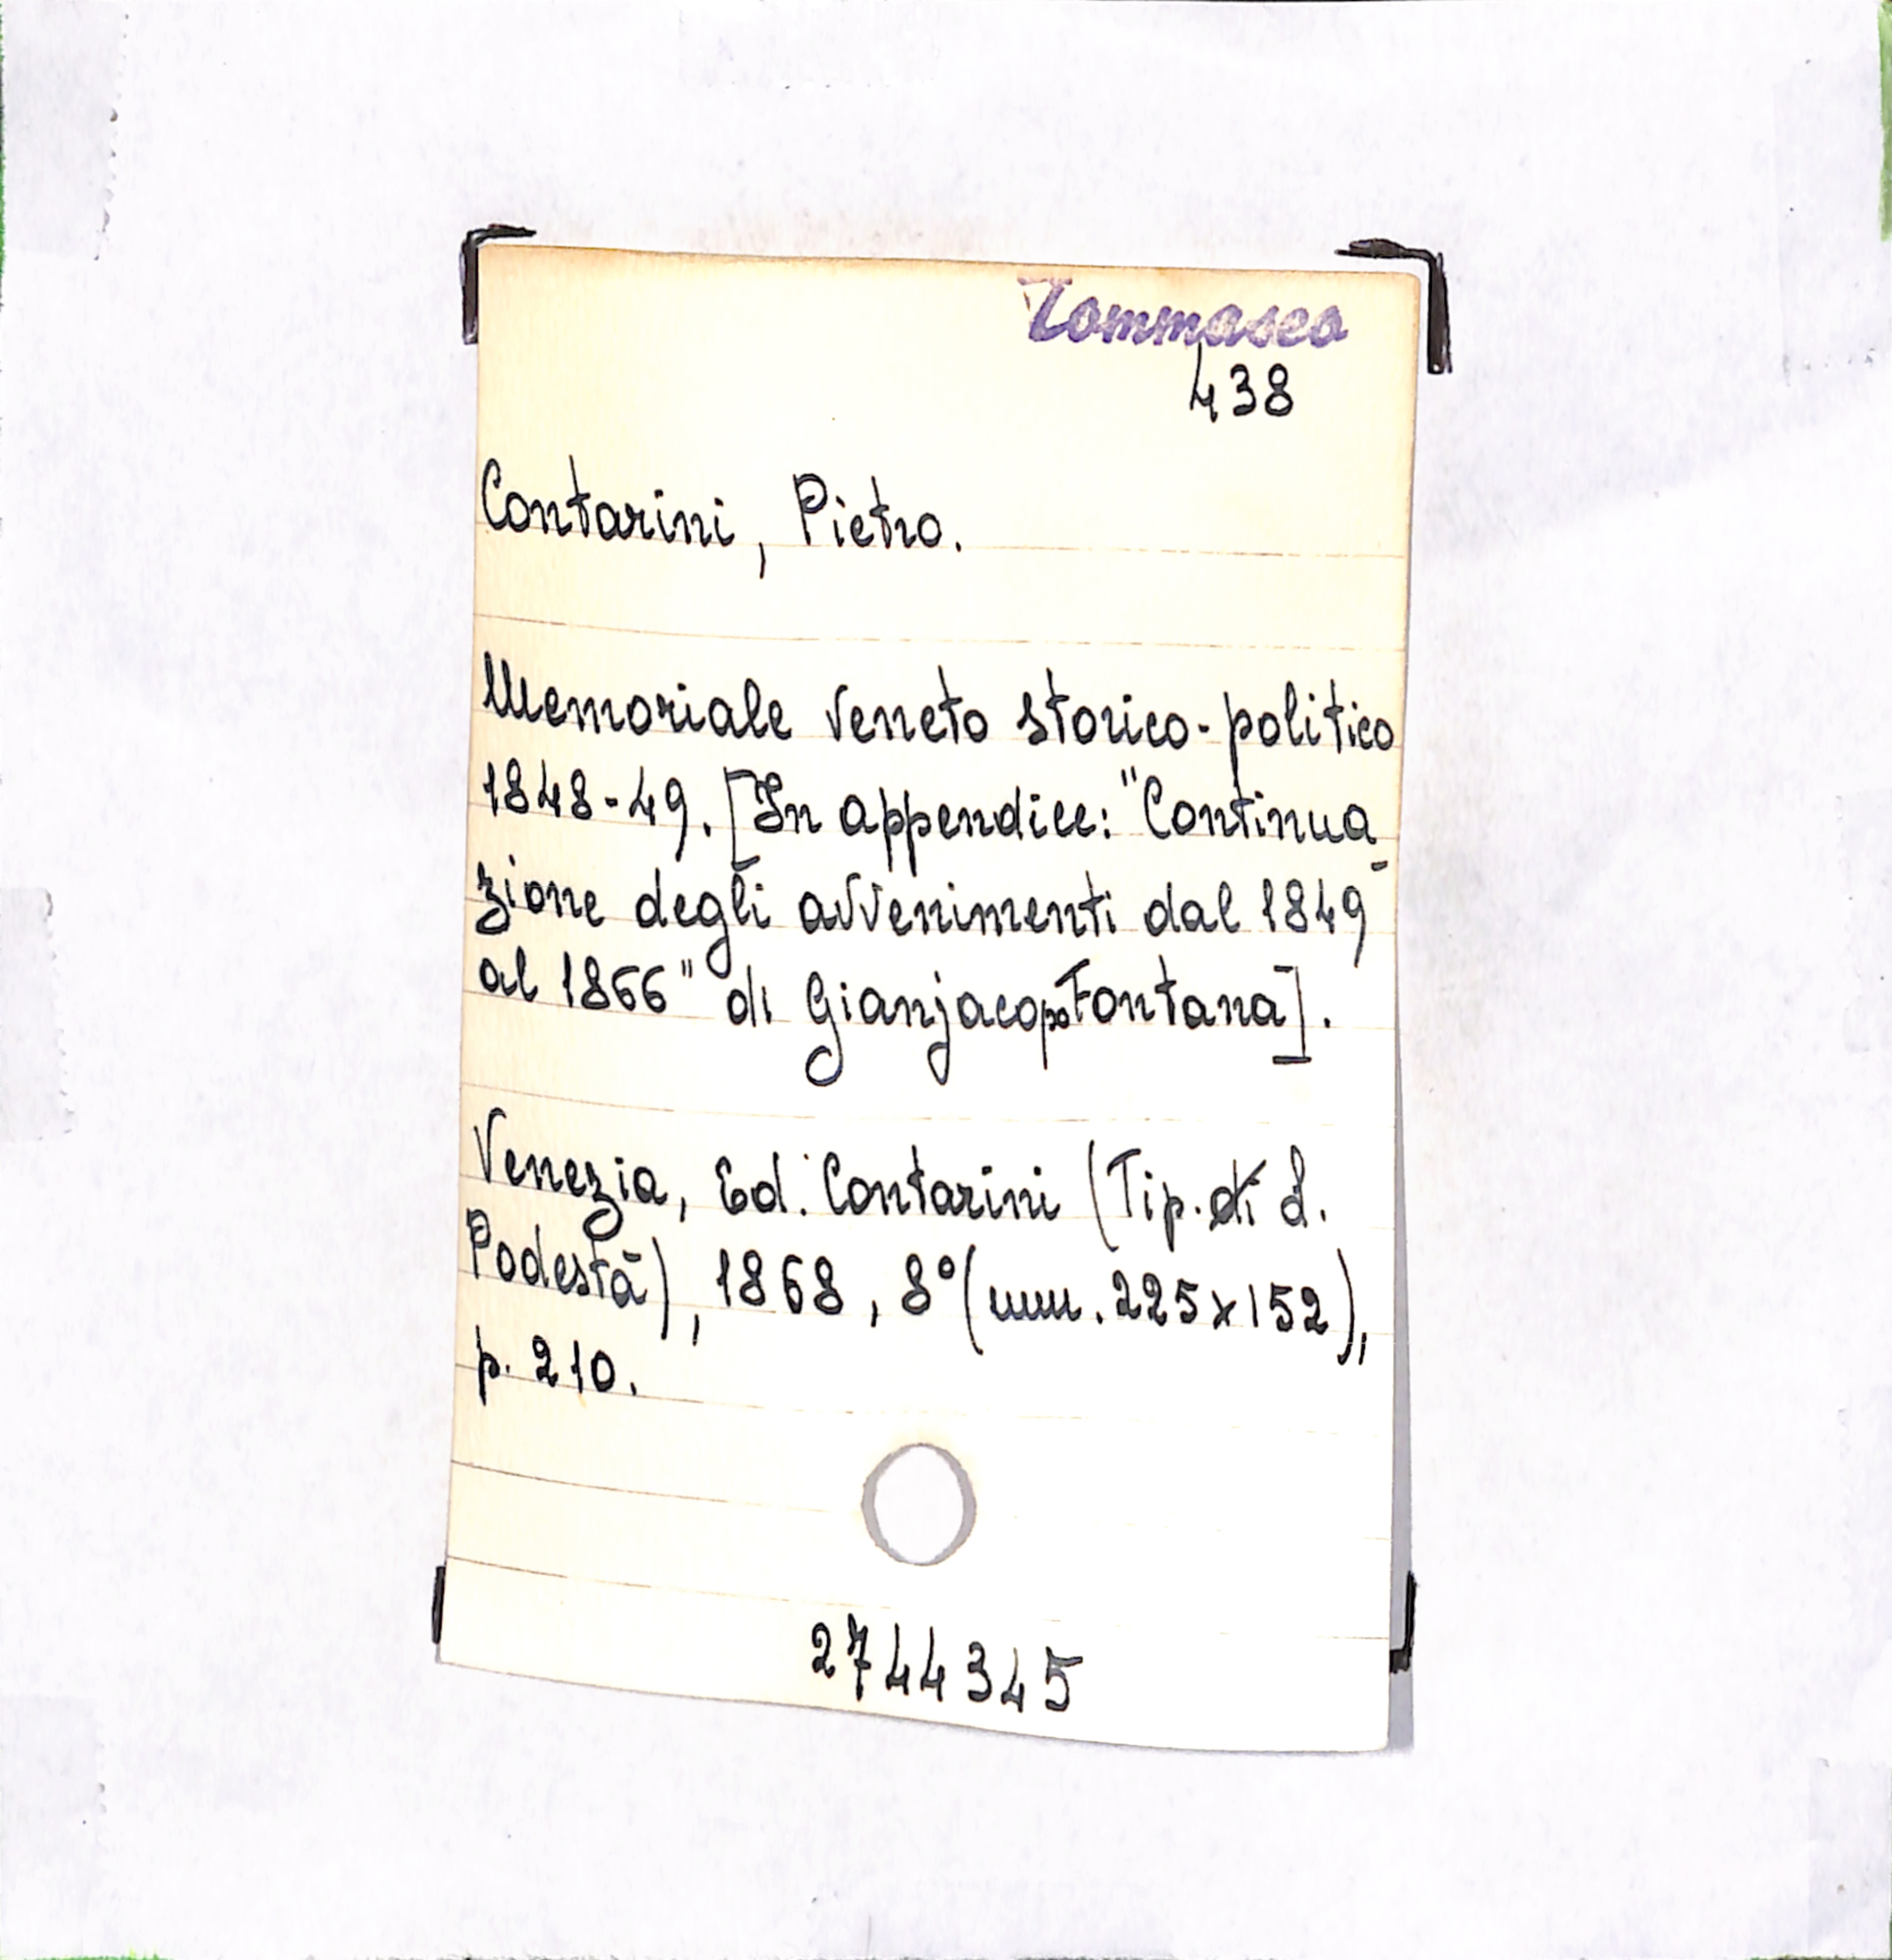 Tommaseo
438
Contarini, Pietro.
Memoriale veneto storico-politico
1848-49. [In appendice: "Continua-
zione degli avvenimenti dal 1849
al 1866" di Gianjacopo Fontana].
Venezia, Ed. Contarini (Tip. di L.
Podestà), 1868, 8° (mm. 225x152),
p. 210.
2744345